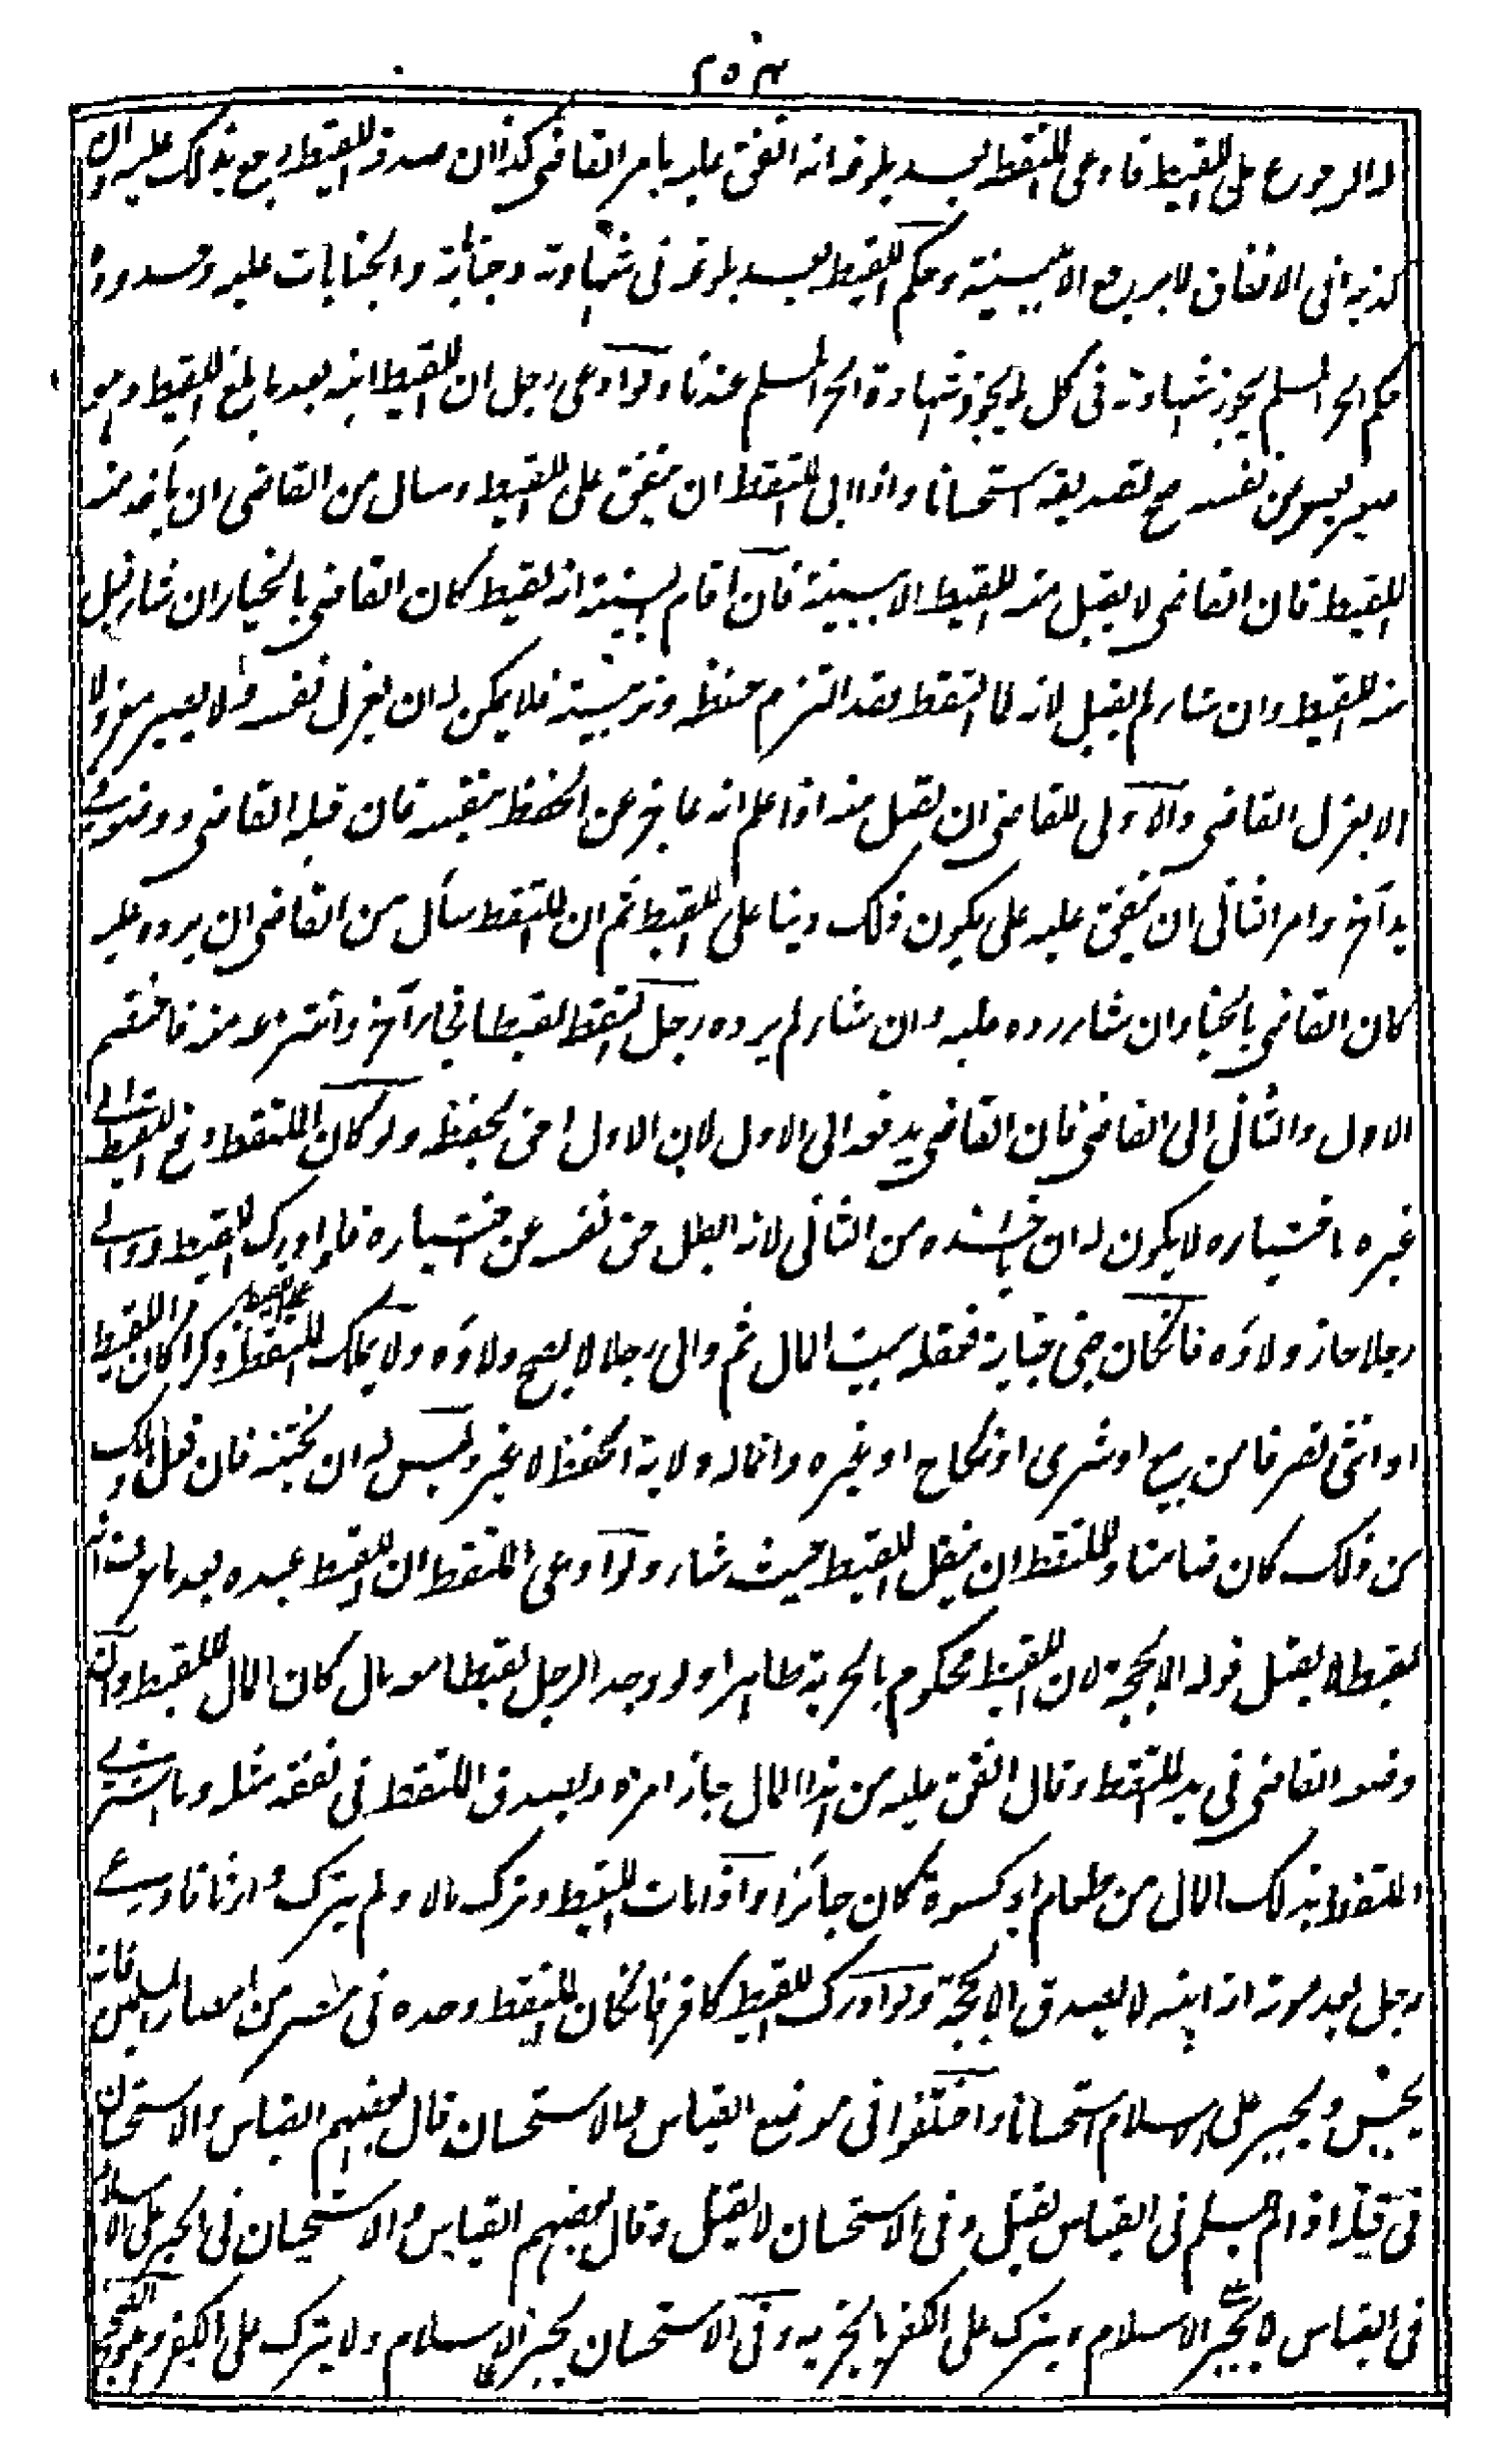 ٢٥٣
له الرجوع على اللقيط فادعى الملتقط بعد بلوغه انه انفق عليه بامر القاضى كذا ان صدقه اللقيط رجع بذلك عليه وان
كذبه فى الانفاق لا يرجع الا ببينة وحكم اللقيط بعد بلوغه فى شهادته وجنايته والجنايات عليه وحدوده
حكم الحر المسلم يجوز شهادته فى كل ما يجوز شهادة الحر المسلم عندنا ولو ادعى رجل ان اللقيط ابنه بعد ما بلغ اللقيط وهو
ممن يعبر عن نفسه صح تصديقه استحسانا واذا ابى الملتقط ان ينفق على اللقيط وسال من القاضى ان ياخذ منه
اللقيط فان القاضى لا يقبل منه اللقيط الا ببينة فان اقام البينة انه لقيط كان القاضى بالخيار ان شاء قبل
منه اللقيط وان شاء لم يقبل لانه لما التقط فقد التزم حفظه وتربيته فلا يمكن له ان يعزل نفسه ولا يصير معزولا
الا بعزل القاضى والاولى للقاضى ان يقبل منه اذا علم انه عاجز عن الحفظ بنفسه فان قبله القاضى ووضعه فى
يد آخر وامر الثانى ان ينفق عليه على يكون ذلك دينا على اللقيط ثم ان الملتقط سأل من القاضى ان يرده عليه
كان القاضى بالخيار ان شاء رده عليه وان شاء لم يرده رجل التقط لقيطا فجاء آخر وانتزعه منه فاختصم
الاول والثانى الى القاضى فان القاضى يدفعه الى الاول لان الاول احق بحفظه ولو كان الملتقط دفع اللقيط الى
غيره باختياره لا يكون له ان ياخذه من الثانى لانه ابطل حق نفسه عن اختياره فلو ادرك اللقيط ووالى
رجلا جاز ولاؤه فان كان جنى جناية فعقله بيت المال ثم والى رجلا لا يصح ولاؤه ولا يملك الملتقط على اللقيط ذكرا كان اللقيط
او انثى تصرفا من بيع او شرى او نكاح او غيره وانما له ولاية الحفظ لا غير وليس له ان يختنه فان فعل وهلك
من ذلك كان ضامنا وللملتقط ان ينقل اللقيط حيث شاء ولو ادعى الملتقط ان اللقيط عبده بعد ما عرف انه
لقيط لا يقبل قوله الا بحجة لان اللقيط محكوم بالحرية ظاهرا ولو وجد الرجل لقيطا معه مال كان المال للقيط وان
وضعه القاضى فى يد الملتقط وقال انفق عليه من هذا المال جاز امره ويصدق الملتقط فى نفقة مثله وما اشترى
الملتقط بذلك المال من طعام او كسوة كان جائزا واذا مات اللقيط وترك مالا ولم يترك وارثا فادعى
رجل بعد موته انه ابنه لا يصدق الا بحجة ولو ادرك اللقيط كافرا فان كان الملتقط وجده فى مصر من امصار المسلمين فانه
يحبس ويجبر على الاسلام استحسانا واختلفوا فى موضع القياس والاستحسان قال بعضهم القياس والاستحسان
فى قتله اذا لم يسلم فى القياس يقتل وفى الاستحسان لا يقتل وقال بعضهم القياس والاستحسان فى الجبر على الاسلام
فى القياس لا يجبر على الاسلام ويترك على الكفر بالجزية وفى الاستحسان يجبر على الاسلام ولا يترك على الكفر وهو الصحيح